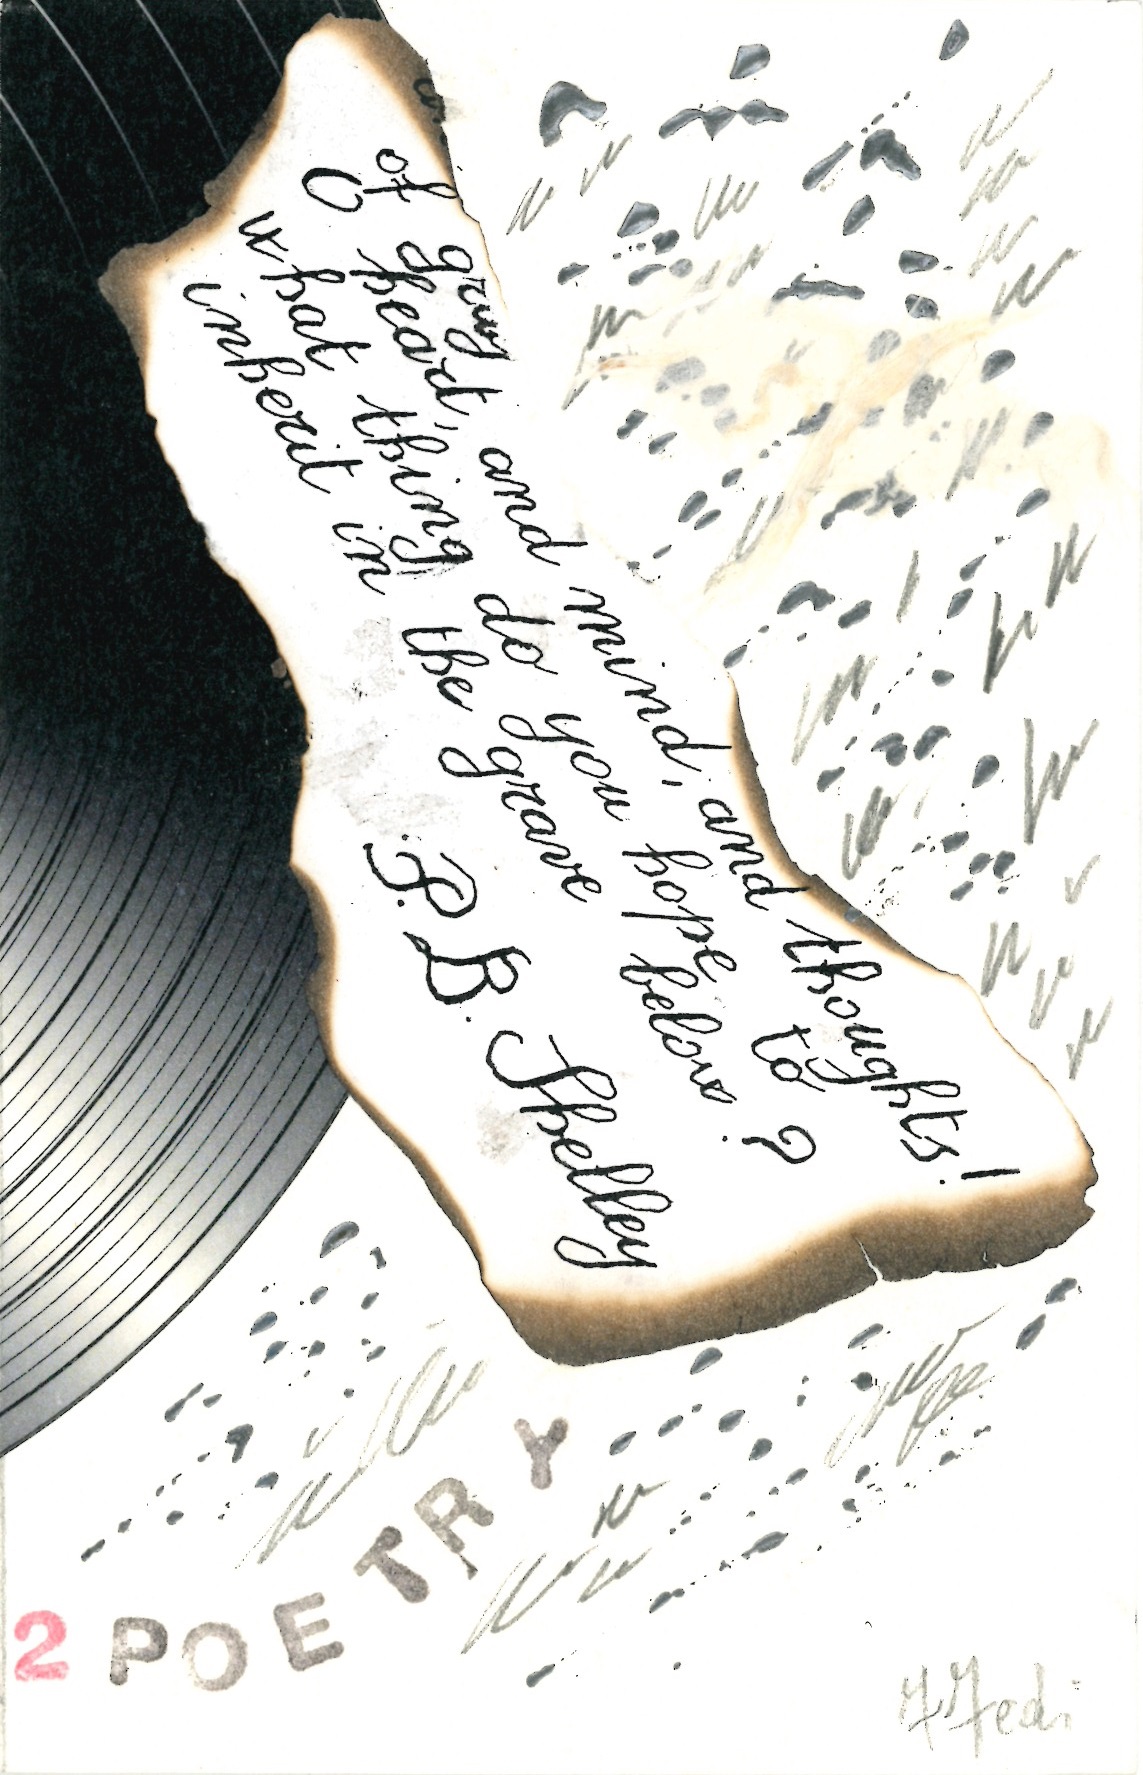 of
O heart, and mind, and thoughts!
what thing do you hope to
inherit in the grave below?
P. B. Shelley
2 POETRY